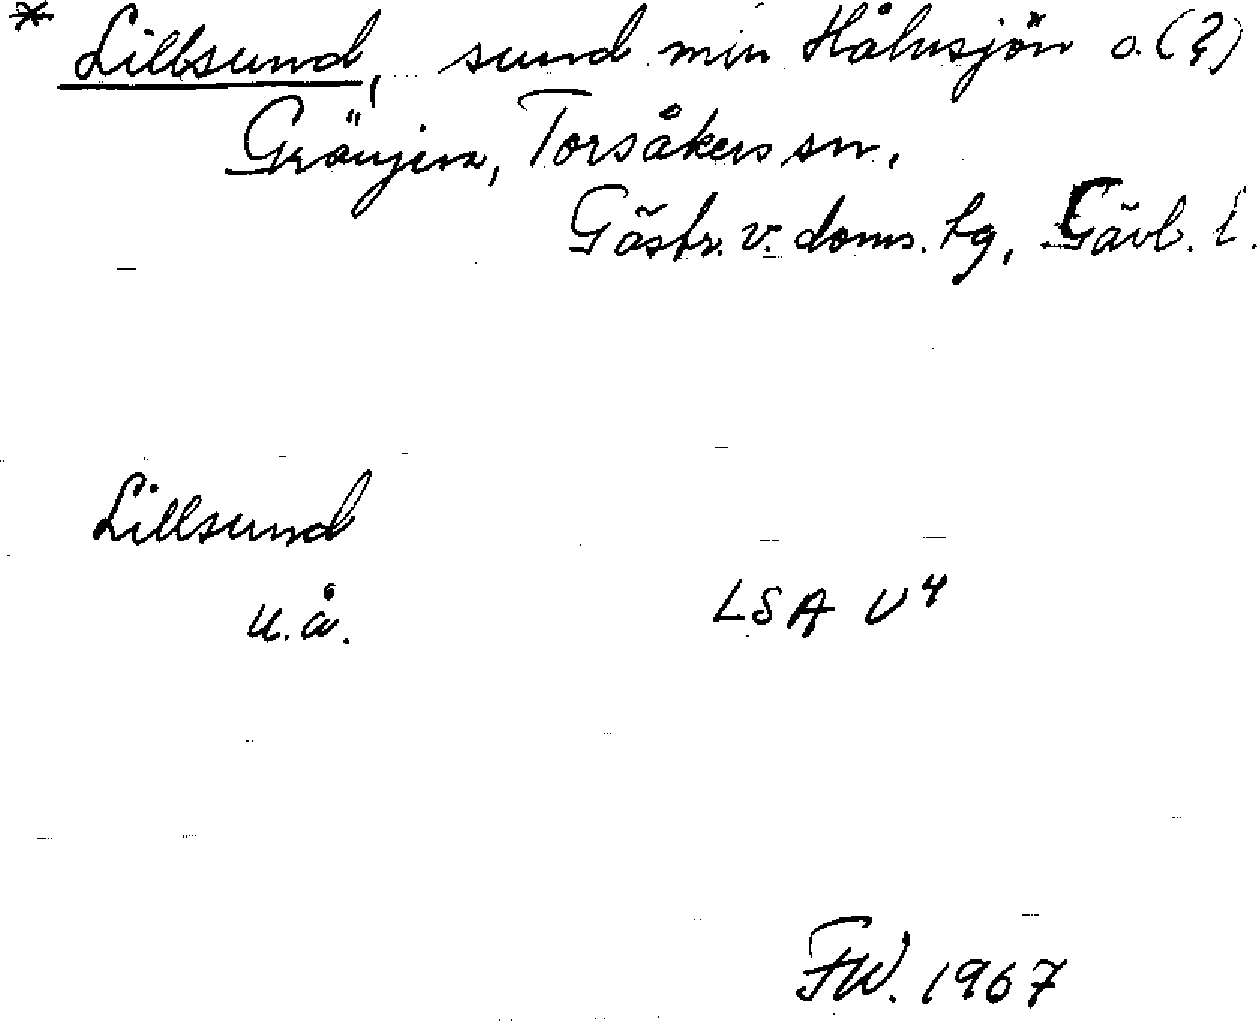 * Lillsund, sund mln Hålnsjön o. (?)
Gränjen, Torsåkers sn,
Gästr. v. doms. tg, Gävl. l.
Lillsund
u.å. LSA U4
FW. 1967